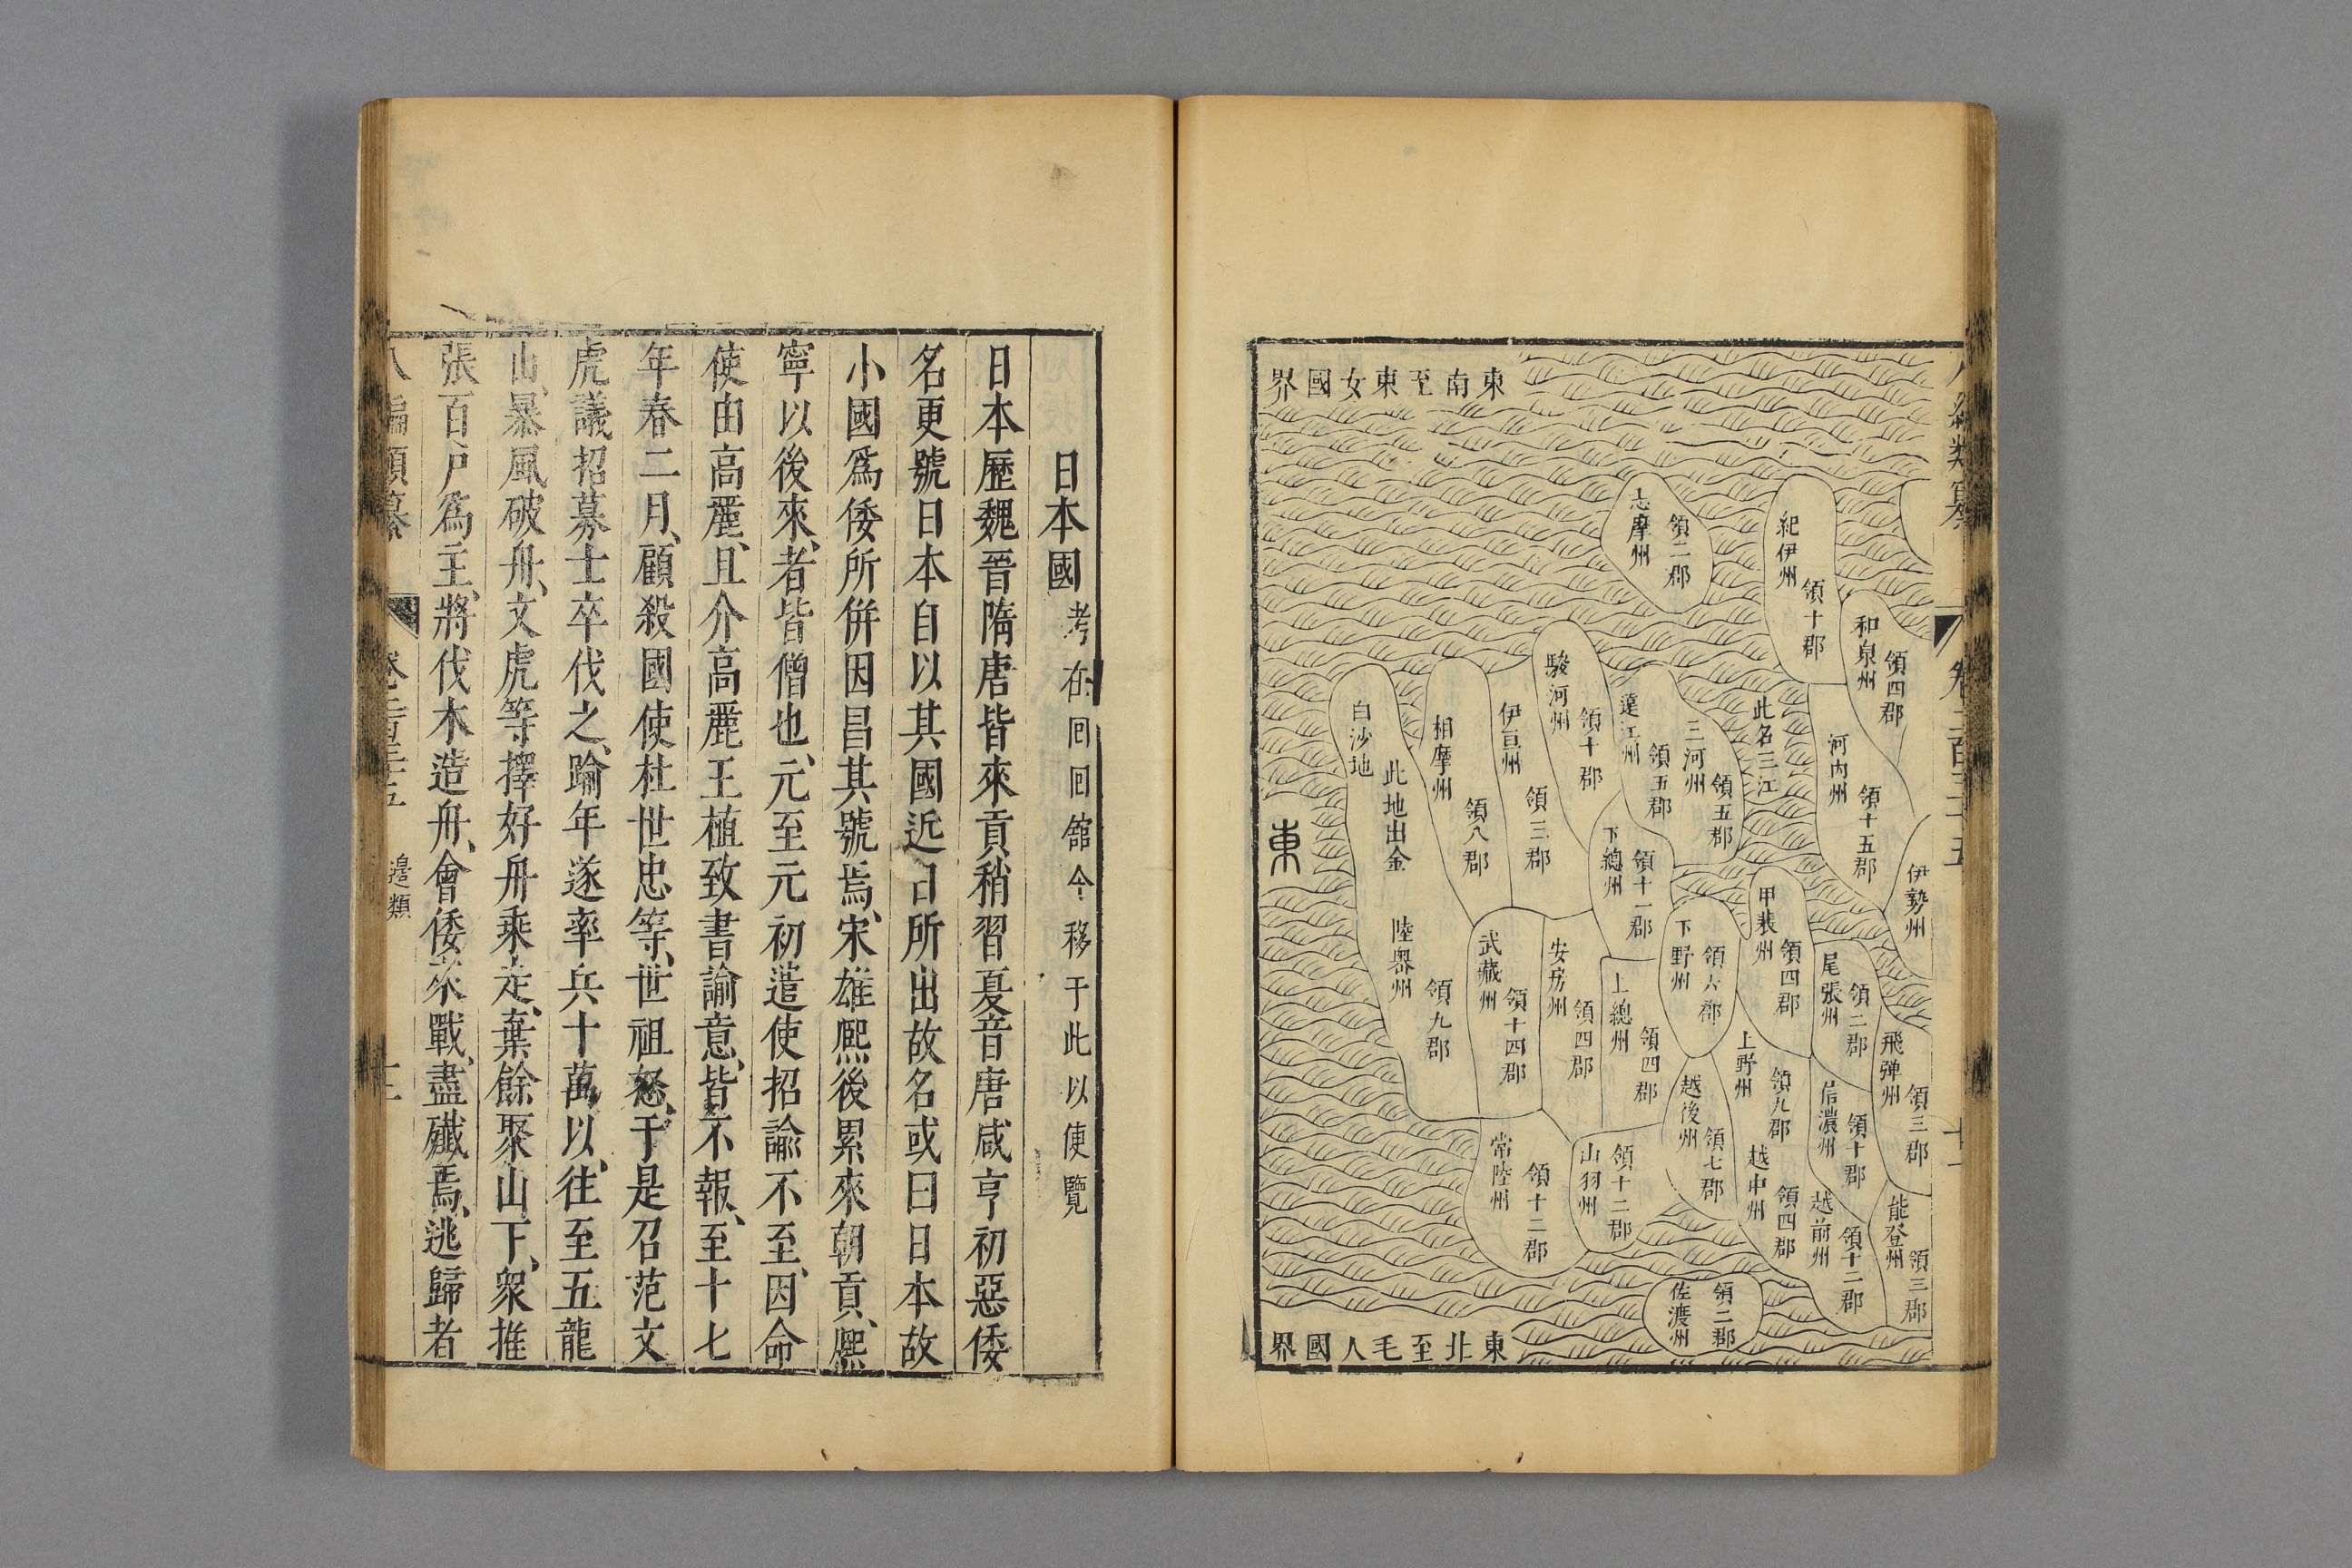 東南至東女國界
志摩州
領二郡
紀伊州
領十郡
和泉州
領四郡
此名三江
河内州
領十五郡
伊勢州
駿河州
領十郡
遠江州
領五郡
三河州
領五郡
伊亘州
領三郡
相摩州
領八郡
白沙地
此地出金
東
陸奥州
領九郡
下總州
領十一郡
武藏州
領十四郡
安房州
領四郡
上總州
領四郡
下野州
領六郡
甲裴州
領四郡
尾張州
領二郡
飛彈州
領三郡
上野州
領九郡
信濃州
領十郡
越後州
領七郡
越中州
領四郡
越前州
領十二郡
能登州
領三郡
常陸州
領十二郡
山羽州
領十二郡
佐渡州
領三郡
東北至毛人國界
日本國考在囘囘舘今移于此以便覽
日本歷魏晉隋唐皆來貢稍習夏音唐咸亨初惡倭
名更號日本自以其國近日所出故名或曰日本故
小國爲倭所併因昌其號焉宋雄熈後累來朝貢熈
寧以後來者皆僧也元至元初遣使招諭不至因命
使由高麗且介高麗王植致書諭意皆不報至十七
年春二月顧殺國使杜世忠等世祖怒于是召范文
虎議招募士卒伐之踰年遂率兵十萬以往至五龍
山暴風破舟文虎等擇好舟乘走棄餘聚山下衆推
張百戸爲主將伐木造舟會倭來戰盡殲焉逃歸者
八編類纂
卷二百三十五
邉類
十二